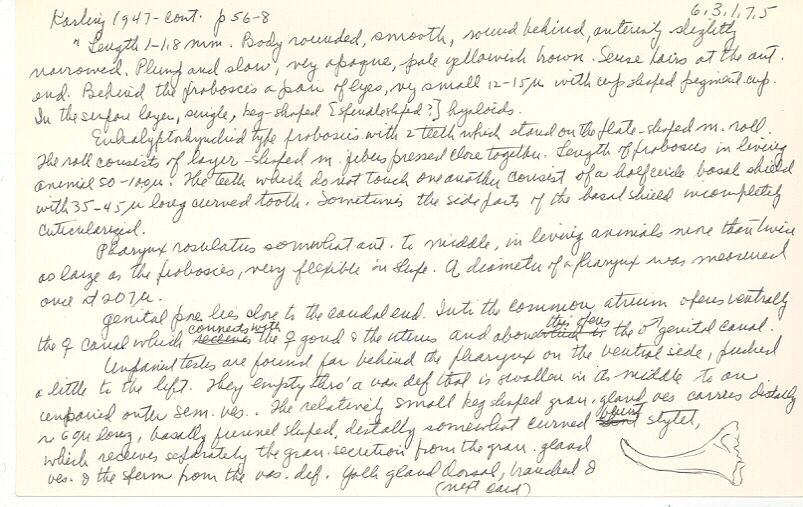 Karling 1947-cont. p 56-8
6.3.1.7.5
" Length 1-1.8 mm. Body rounded, smooth, round behind, anteriorly slightly
narrowed. Plump and slow, very opaque, pale yellowish brown. Sense hairs at the ant.
end. Behind the proboscis a pair of eyes, very small 12-15µ with cup shaped pigment cup.
In the surface layer, single, keg-shaped [spindle shaped?] hyaloids.
Eukalyptorhynchid type proboscis with 2 teeth which stand on the plate-shaped m. roll.
The roll consists of layer-shaped m. fibers pressed close together. Length of proboscis in living
animal 50-100µ. The teeth which do not touch one another consist of a halfcircle basal shield
with 35-45µ long curved tooth. Sometimes the side parts of the basal shield incompletely
cuticularized.
Pharynx rosulatus somewhat ant. to middle, in living animals more than twice
as large as the proboscis, very flexible in shape. A diameter of a pharynx was measured
once at 207µ.
Genital pore lies close to the caudal end. Into the common atrium opens ventrally
the ♀ canal which receives connects with the ♀ gonod & the uterus and above which is this opens the ♂ genital canal.
Unpaired testes are found far behind the pharynx on the ventral side, pushed
a little to the left. They empty thro' a vas def that is swollen in its middle to an
unpaired outer sem. ves.. The relatively small keg shaped gran. gland ves carries distally
~ 69µ long, basally funnel shaped, distally somewhat curved short blunt stylet,
which receives separately the gran. secretion from the gran. gland
ves. & the sperm from the vas. def. Yolk gland dorsal, branched &
(next card)